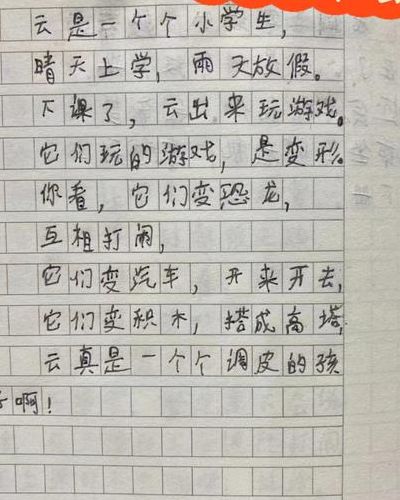 云是一个个小学生，
晴天上学，雨天放假。
下课了，云出来玩游戏。
它们玩的游戏，是变形。
你看，它们变恐龙，
互相打闹，
它们变汽车，开来开去，
它们变积木，搭成高塔，
云真是一个个调皮的孩
子啊！